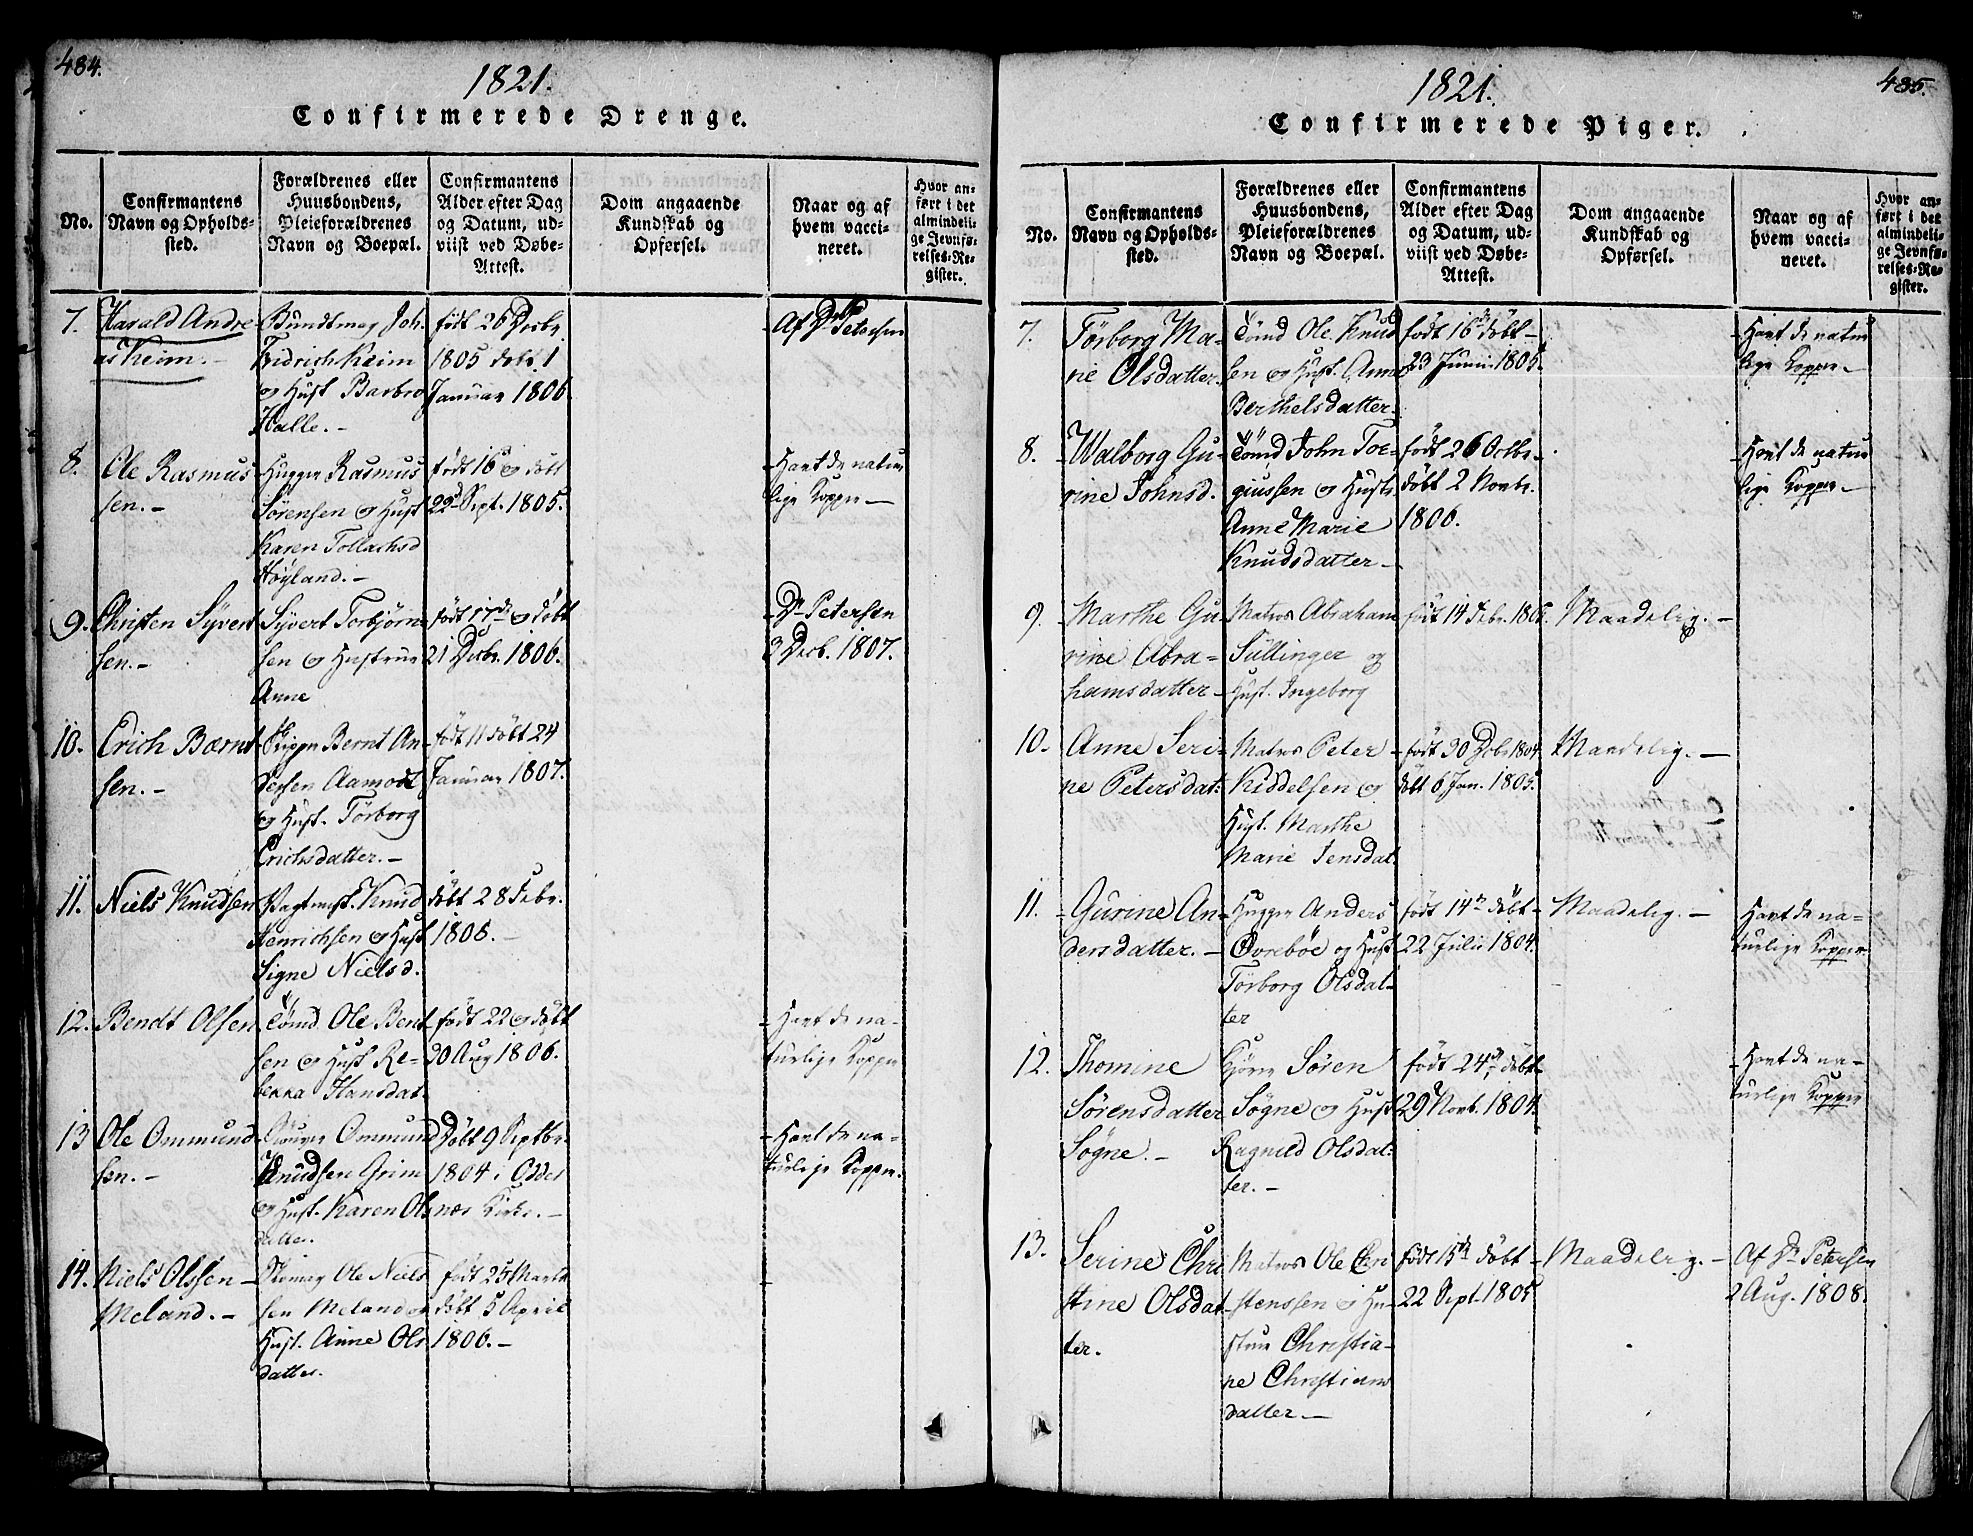 484.
1821.
Confirmerede Drenge.
No.
Confirmantens
Navn og Opholds-
sted.
Forældrenes eller
Huusbondens,
Pleieforældrenes
Navn og Boepæl.
Confirmantens
Alder efter Dag
og Datum, ud-
viist ved Døbe-
Attest.
Dom angaaende
Kundskab og
Opførsel.
Naar og af
hvem vacci-
neret.
Hvor an-
ført i det
almindeli-
ge Jevnfø-
relses-Re-
gister.
7.
Harald Andre
as Keim.-
Bundtmag Joh.
Fridrich Keim
og Hust Barbro
Halle.-
født 26 Decbr
1805 døbt 1
Januar 1806
Af Dr Petersen
8.
Ole Rasmus
sen.-
Hugger Rasmus
Sörensen og Hust
Karen Tollachsd
Höyland.-
født 16 og døbt
22d Sept. 1805.
Havt de natur
lige Kopper-
9.
Christen Syvert
sen.-
Syvert Torbjörn
sen og Hustrue
Anne
født 17de og døbt
21 Decbr. 1806.
Dr Petersen
3 Decb. 1807.
10.
Erich Bærnt
sen.-
Skipper Bernt An-
dersen Aamodt
og Hust. Törborg
Erichsdatter.-
født 11 døbt 24
Januar 1807.
11.
Niels Knudsen
Vagtmest. Knud
Henrichsen og Hust
Signe Nielsd.
døbt 28 Febr.
1806.-
12.
Bendt Olsen
Tömd. Ole Bent
sen og Hust Re-
bekka Hansdat.
født 22 og døbt
30 Aug 1806.
Havt de na-
turlige Kopper
13
Ole Ommund
sen.-
Ommund
Knudsen Grim
og Hust. Karen Ols
datter.
Døbt 9 Septbr.
1804 i Odder
nes Kirke.-
Havt de na-
turlige Kopper.
14.
Niels Olssen
Meland.-
Skomag Ole Niels
sen Meland og
Hust. Anne Ols
datter.
født 25 Marts
døbt 5 April
1806.-
485.
1821.
Confirmerede Piger.
No.
Confirmantens
Navn og Opholds-
sted.
Forældrenes eller
Huusbondens,
Pleieforældrenes
Navn og Boepæl.
Confirmantens
Alder efter Dag
og Datum, ud-
viist ved Døbe-
Attest.
Dom angaaende
Kundskab og
Opførsel.
Naar og af
hvem vacci-
neret.
Hvor an-
ført i det
almindeli-
ge Jevnfø-
relses-Re-
gister.
7.
Törborg Ma-
rie Olsdatter
Tömd Ole Knud
sen og Hust. Anne
Berthelsdatter-
født 16de døbt
23 Junii 1805.
Havt de natur
lige Kopper-
8.
Walborg Gu-
rine Johnsd.
Tömd John Tor-
giussen og Hustr.
Anne Marie
Knudsdatter-
født 26 Octbr.
døbt 2 Novbr.
1806.
Havt de natur
lige Kopper-
9.
Marthe Gu
rine Abra-
hamsdatter
Matros Abraham
Süllinger og
Hust. Ingeborg
født 14 Febr. 1805.
Maadelig.-
10.
Anne Seri-
ne Petersdat:
Matros Peter
Kiddelsen og
Hust. Marthe
Marie Jensdat
født 30 Dcbr 1804.
døbt 6 Jan. 1805.
Maadelig.-
11.
Gurine An-
dersdatter.-
Hugger Anders
Øvrebøe og Hust
Törborg Olsdat-
ter
født 14de døbt
22 Julii 1804.
Maadelig.-
Havt de na-
turlige Kopper
12.
Thomine
Sörensdatter
Sögne.-
Sören
Sögne og Hust
Ragnild Olsdat:
ter.-
født 24de døbt
29 Novb. 1804.
Havt de na-
turlige Kopper
13.
Serine Chri
stine Olsdat
ter.
Matros Ole Cri
stenssen og Hu-
strue Christia-
ne Christians
datter-
født 15de døbt
22 Sept. 1805
Maadelig.-
Af Dr Petersen
2 Aug. 1808.